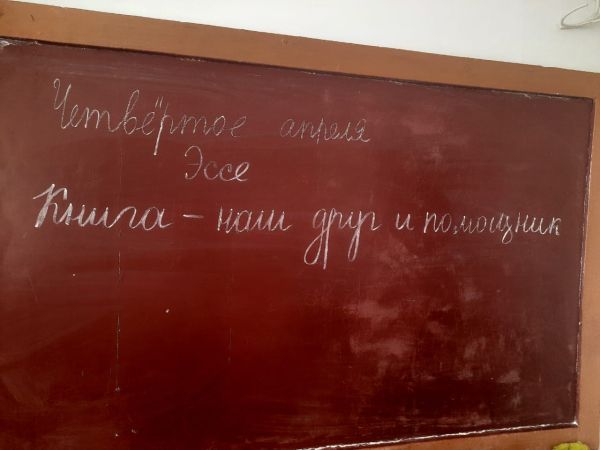 Четвёртое апреля
Эссе
Книга – наш друг и помощник